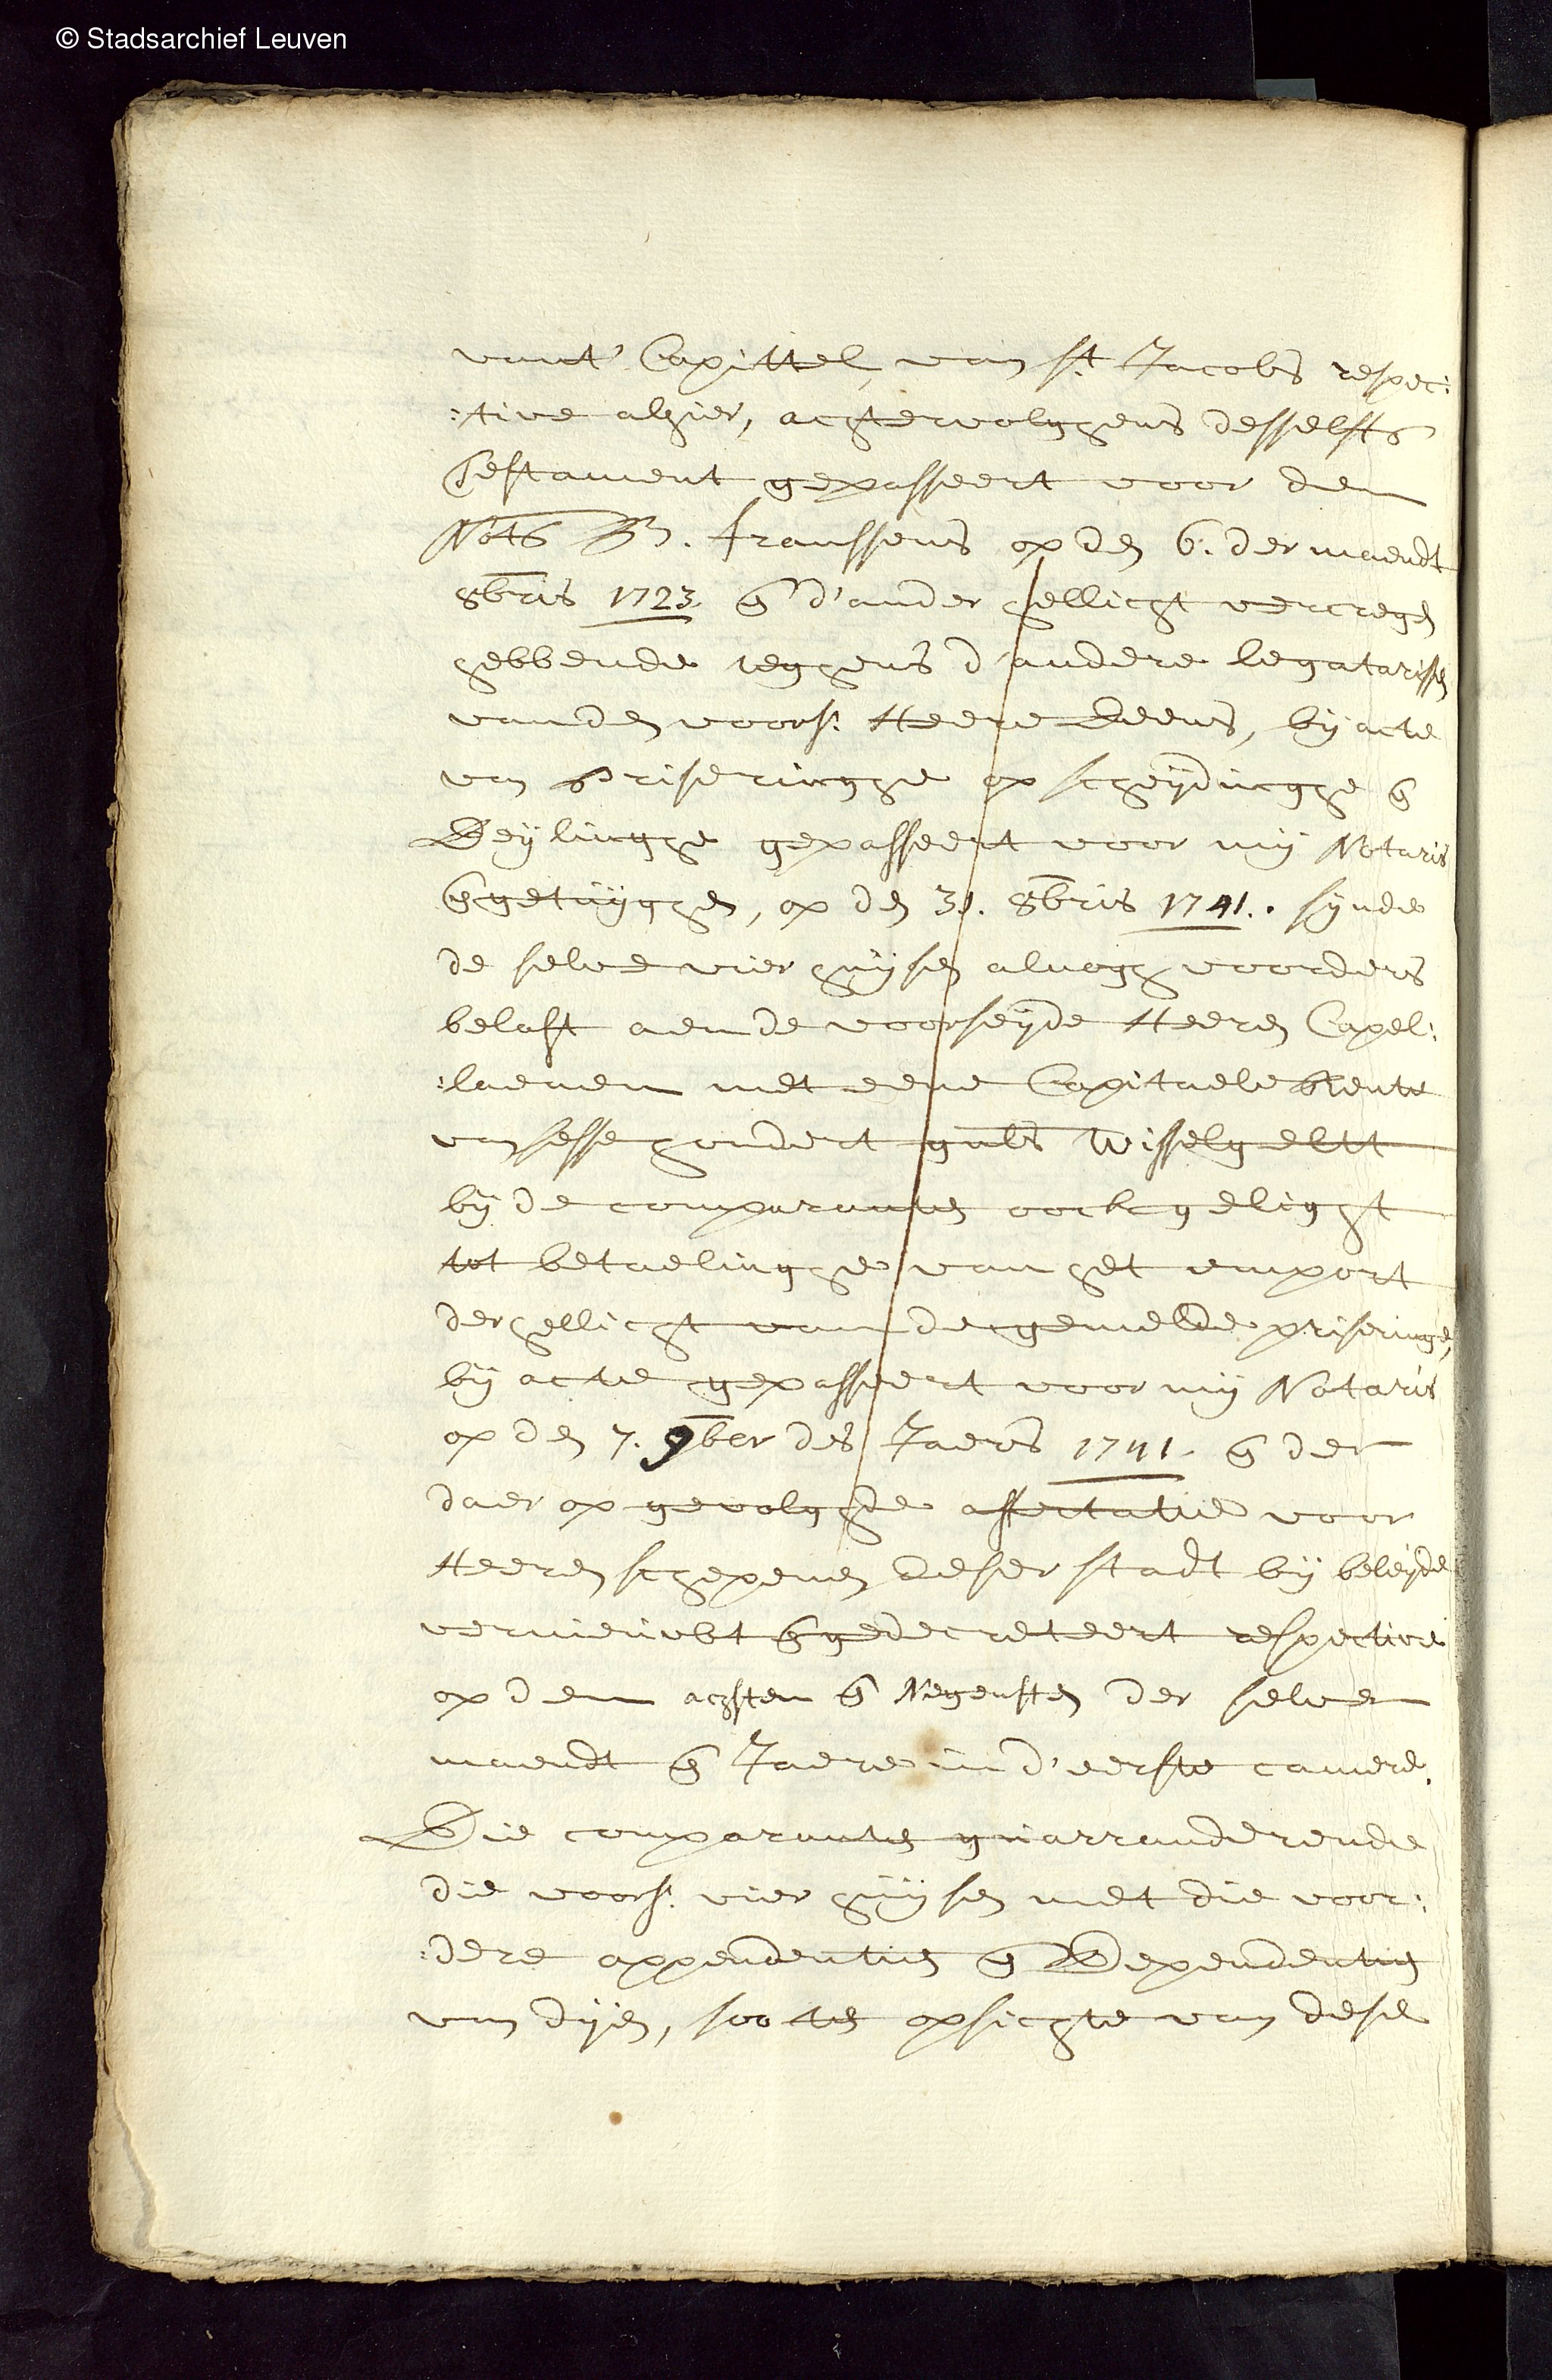 © Stadsarchief Leuven
vant' Capittel, van st Jacobs respec:
:tive alhier, achtervolghens desselfts
testament gepasseert voor den
Nots B. franssens op den 6. der maendt
8bris 1723. en d'ander hellicht vercregen
hebbende teghens d'andere legatarissen
vanden voorst. Heere Deens, by acte
van priseringhe op scheydinghe en
Deylinghe gepasseert voor my Notaris
en getuyghen, op den 31. 8bris 1741.. synde
de selve vier huysen alnogh voorders
belast aende voorseyde Heeren Capel:
:laenen met eene Capitaele Rente
van sesse hondert guls Wisselgeltt
by de comparanten oock gelight
tot betaelinghe van het emport
der hellicht van de gemelde priseringe,
by acte gepasseert voor my Notaris
op den 7. 9ber des Jaers 1741. en der
daer op gevolghde affectatie voor
Heeren schepenen deser stadt by beleyde
vernieuwt en gedecreteert respective
op den achsten en Negensten der selver
maendt en Jaere in d'eerste camere.
Die comparanten guarranderende
die voorst. vier huysen met die voor:
:dere appendentien en Dependentien
van dyen, soo ten opsichte van dese